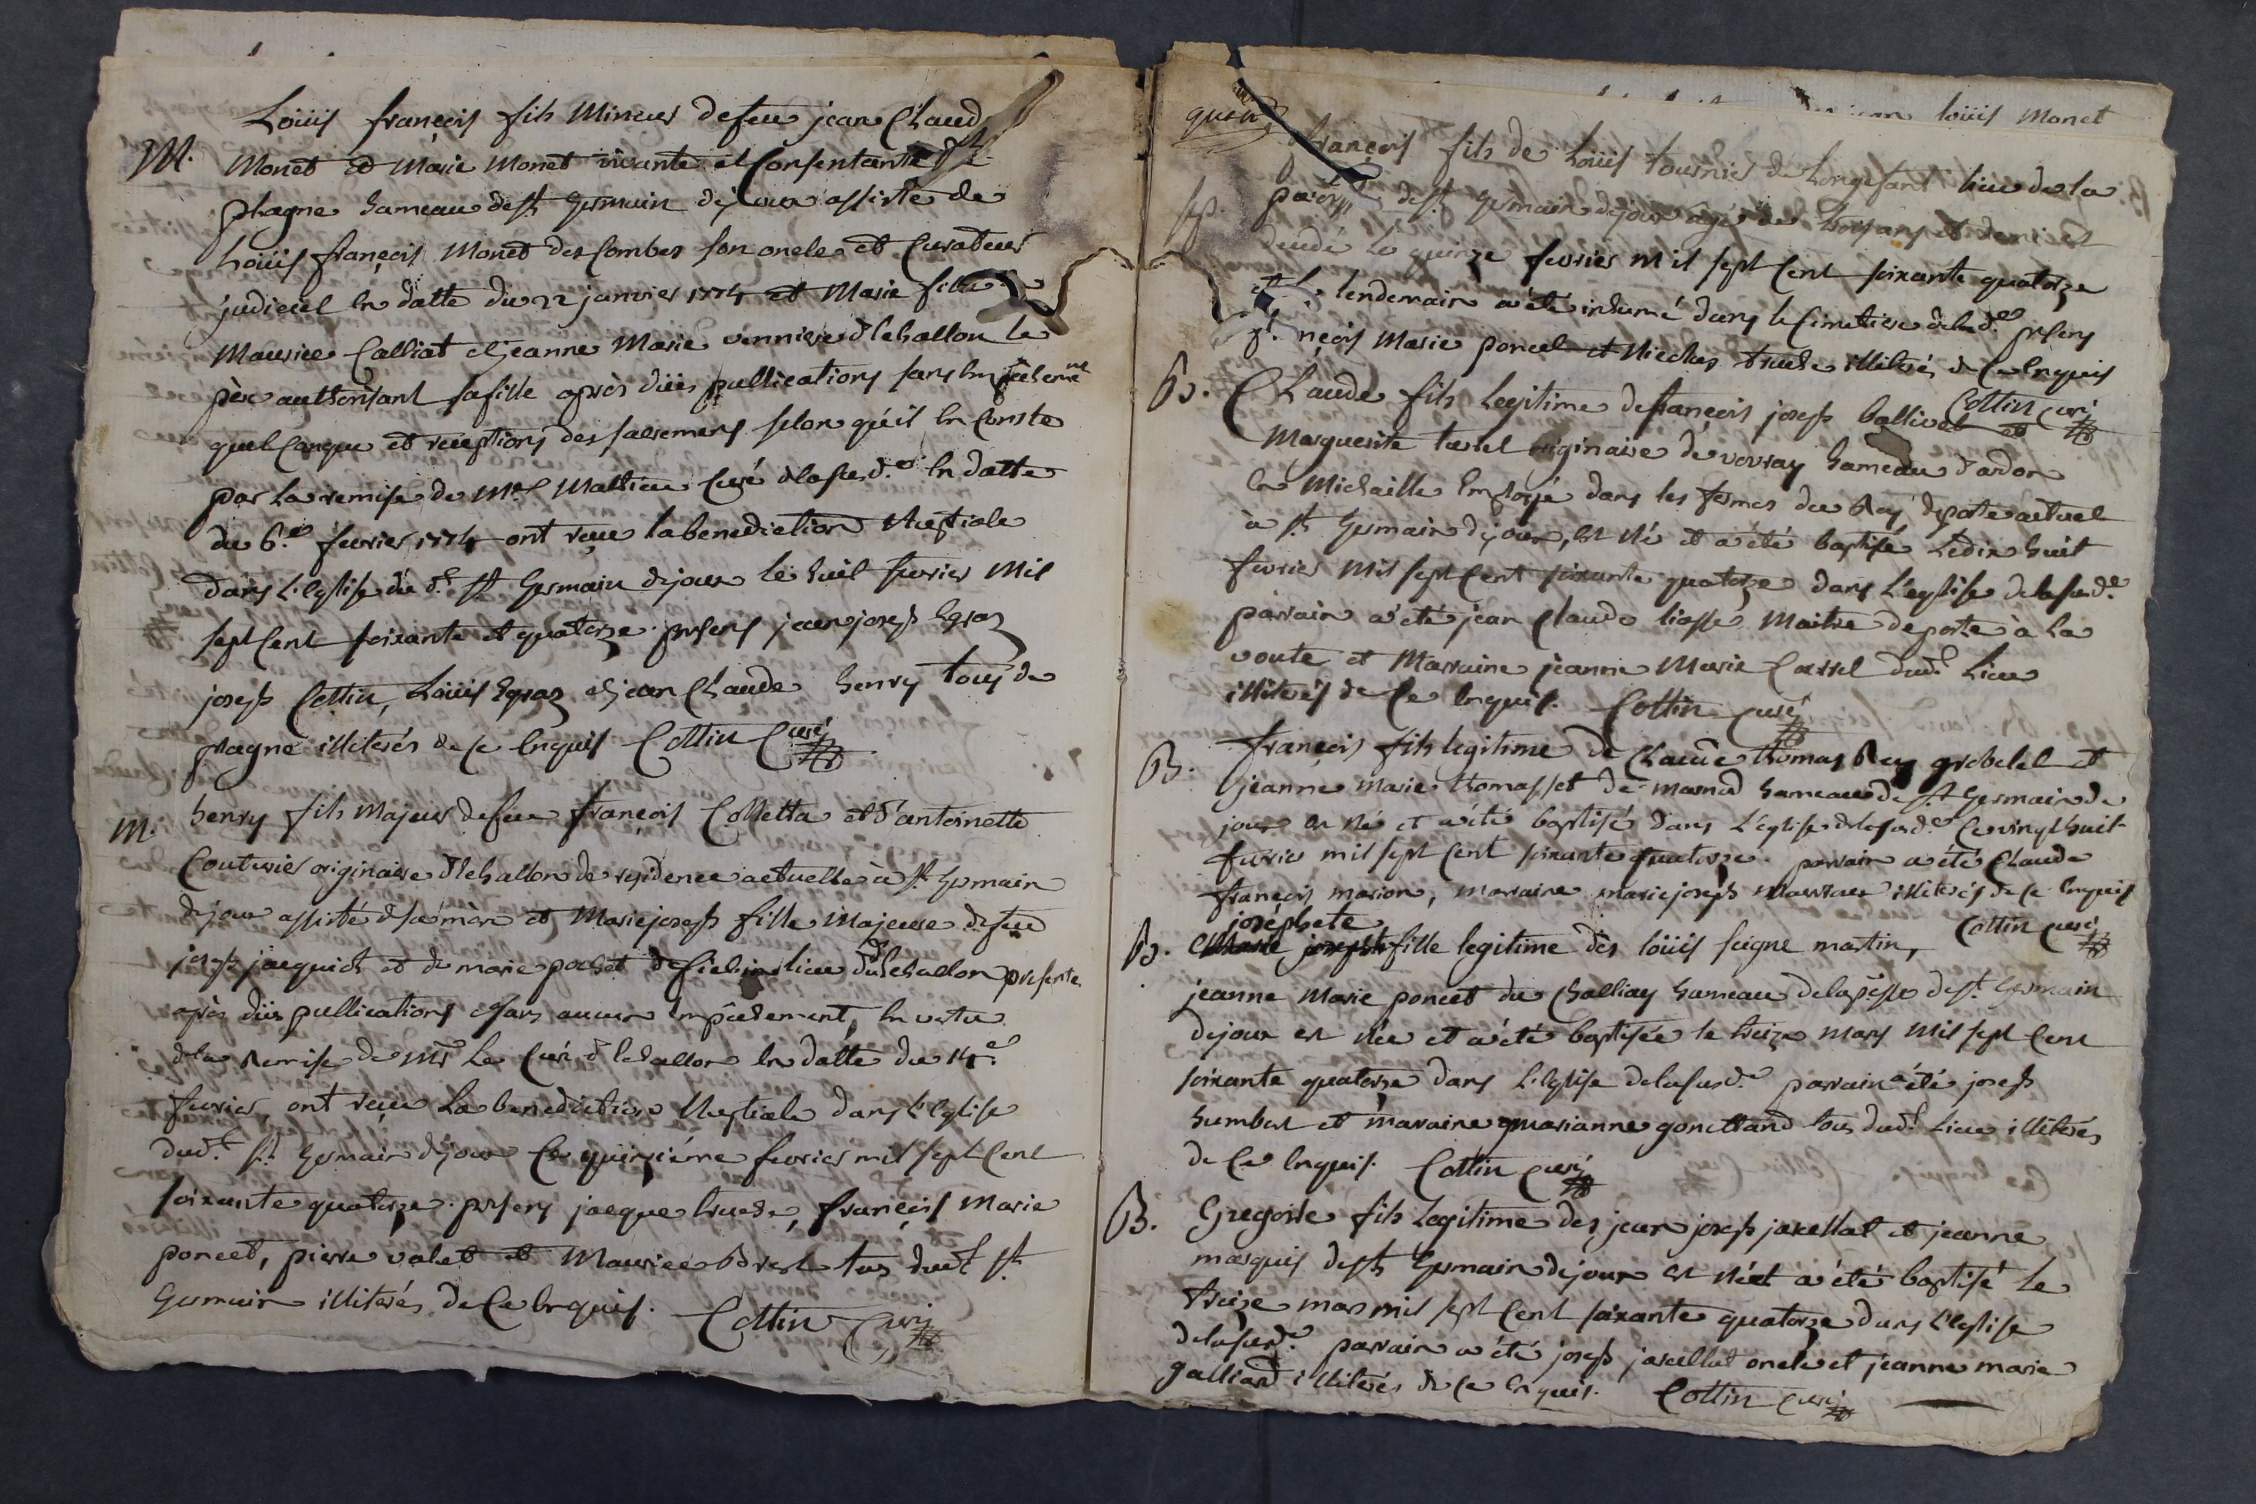 Loüis françois fils Mineur de feu jean Claude
M. Monet et Marie Monet vivante et Consentante de
plagne hameau de st Germain de joux assisté de
Loüis françois Monet des Combes son oncle et Curateur
judiciel en datte du 22 janvier 1774 et Marie fille de
Maurice Calliat et jeanne Marie d'Echallon le
père authorisant sa fille après düës publications sans empechement
quelconque et receptions des sacremens selon qu'il en Conste
par la remise de Mre Mathieu Curé de la susd.e en datte
du 6.e fevrier 1774 ont reçue la benediction Nuptiale
dans L'eglise du d.t st Germain de joux le huit fevrier Mil
sept Cent soixante et quatorze. presens jean joseph Egraz
joseph Cottin, Loüis Egraz et jean Claude henry tous de
plagne illiterés de ce Enquis Cottin Curé
M. henry fils Majeur de feu françois Colletta et d'antoinette
Couturier originaire d'Echallon de residence actuelle à st Germain
de joux assisté de sa mère et Marie joseph fille Majeure de feu
joseph jacquiot et de marie pochet de lieu d'Echallon presente
après düës publications et sans aucun Empêchement, en vertu
de la Remise de Mr Le Curé d'Echallon en datte du 14.e
fevrier, ont reçue La benediction Nuptiale dans L'eglise
dud.t st Germain de joux Ce quinzième fevrier mil sept Cent
soixante quatorze. presens jacque truche, françois Marie
poncet, pierre valet et Maurice tous dud.t st
Germain illiterés de Ce Enquis. Cottin Curé
loüis Monet
françois fils de Loüis tournier de Longefant lieu de la
sep. paroisse de st Germain de joux âgé de trois ans et demi est
decedé Le quinze fevrier mil sept Cent soixante quatorze
et le lendemain a été inhumé dans le Cimetiere de lad.e presens
françois Marie poncet et Nicolas truche illiterés de Ce Enquis
Cottin Curé
B. Claude fils Legitime de françois joseph ballivet et
Marguerite originaire de vouvray hameau d'ardon
en Michaille Employé dans les fermes du Roy, de poste actuel
à st Germain de joux, est Né et a été baptisé Le dix huit
fevrier mil sept Cent soixante quatorze dans L'eglise de la susd.e
parrain a été jean Claude Maitre de poste à La
voute et Marraine jeanne Marie dud.t Lieu
illiterés de Ce Enquis. Cottin Curé
B. françois fils legitime de Claude thomas Rey grobelet et
jeanne marie thomasset de marnod hameau de st Germain de
joux est Né et a été baptisé dans L'eglise de la susd.e Ce vingt huit
fevrier mil sept Cent soixante quatorze. parrain a été Claude
françois marion, marraine marie joseph illiterés de Ce Enquis
Cottin Curé
joséphete
B. Marie joseph fille legitime des loüis seigne martin,
jeanne Marie poncet du Challiay hameau de la pss.e de st Germain
de joux est Née et a été baptisée le treize Mars Mil sept Cent
soixante quatorze dans L'eglise de la susd.e parrain a été joseph
humbert et maraine marianne gonettand tous dud.t Lieu illiterés
de Ce Enquis. Cottin Curé
B. Gregoire fils Legitime des jean joseph jaxellat et jeanne
marquis de st Germain de joux est Né et a été baptisé Le
treize mars mil sept Cent soixante quatorze dans L'eglise
de la susd.e parrain a été joseph jaxellat oncle et jeanne marie
galliard illiterés de Ce Enquis. Cottin Curé